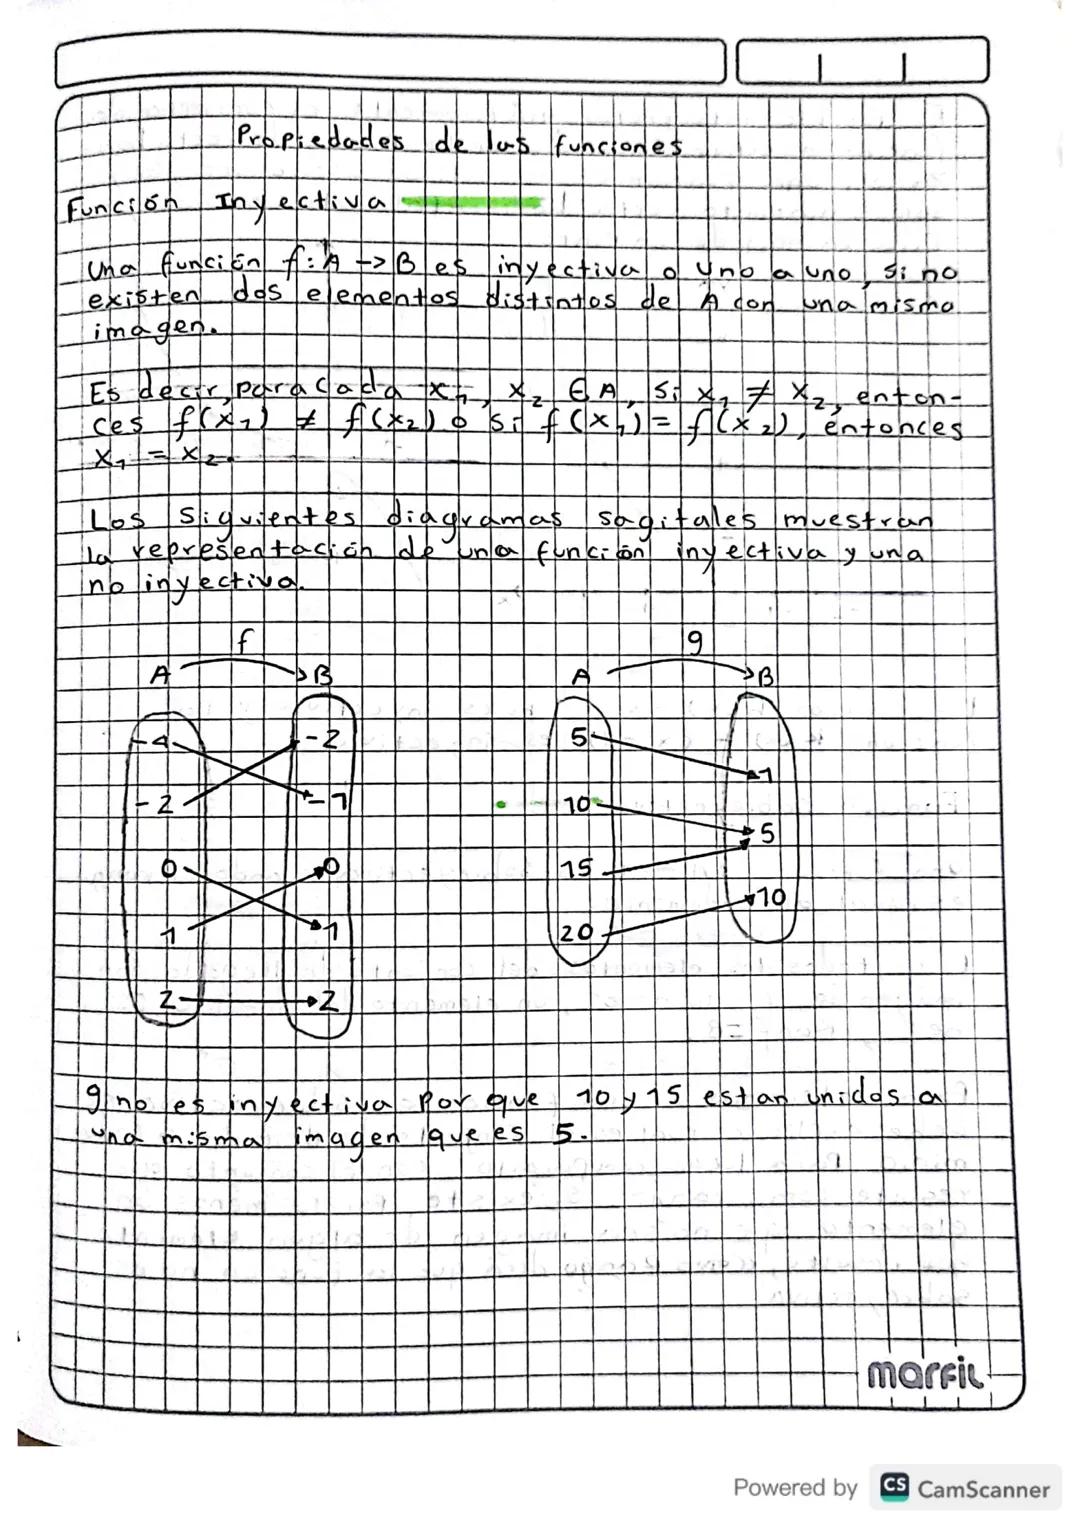 Propiedades de las funciones
Función Inyectiva
Una función f: A -> B es inyectiva o uno a uno, si no
existen dos elementos distintos de A con una misma
imagen.
Es decir, para cada x₁, x₂ ∈ A, si x₁ ≠ x₂, enton-
ces f(x₁) ≠ f(x₂) o si f(x₁) = f(x₂), entonces
x₁ = x₂.
Los siguientes diagramas sagitales muestran
la representación de una función inyectiva y una
no inyectiva.
f g
A B A B
-4 -2 5 1
-2 -1 10 5
0 0 15 10
1 1 20
2 2
g no es inyectiva por que 10 y 15 estan unidos a
una misma imagen que es 5.
marfil
Powered by CS CamScanner